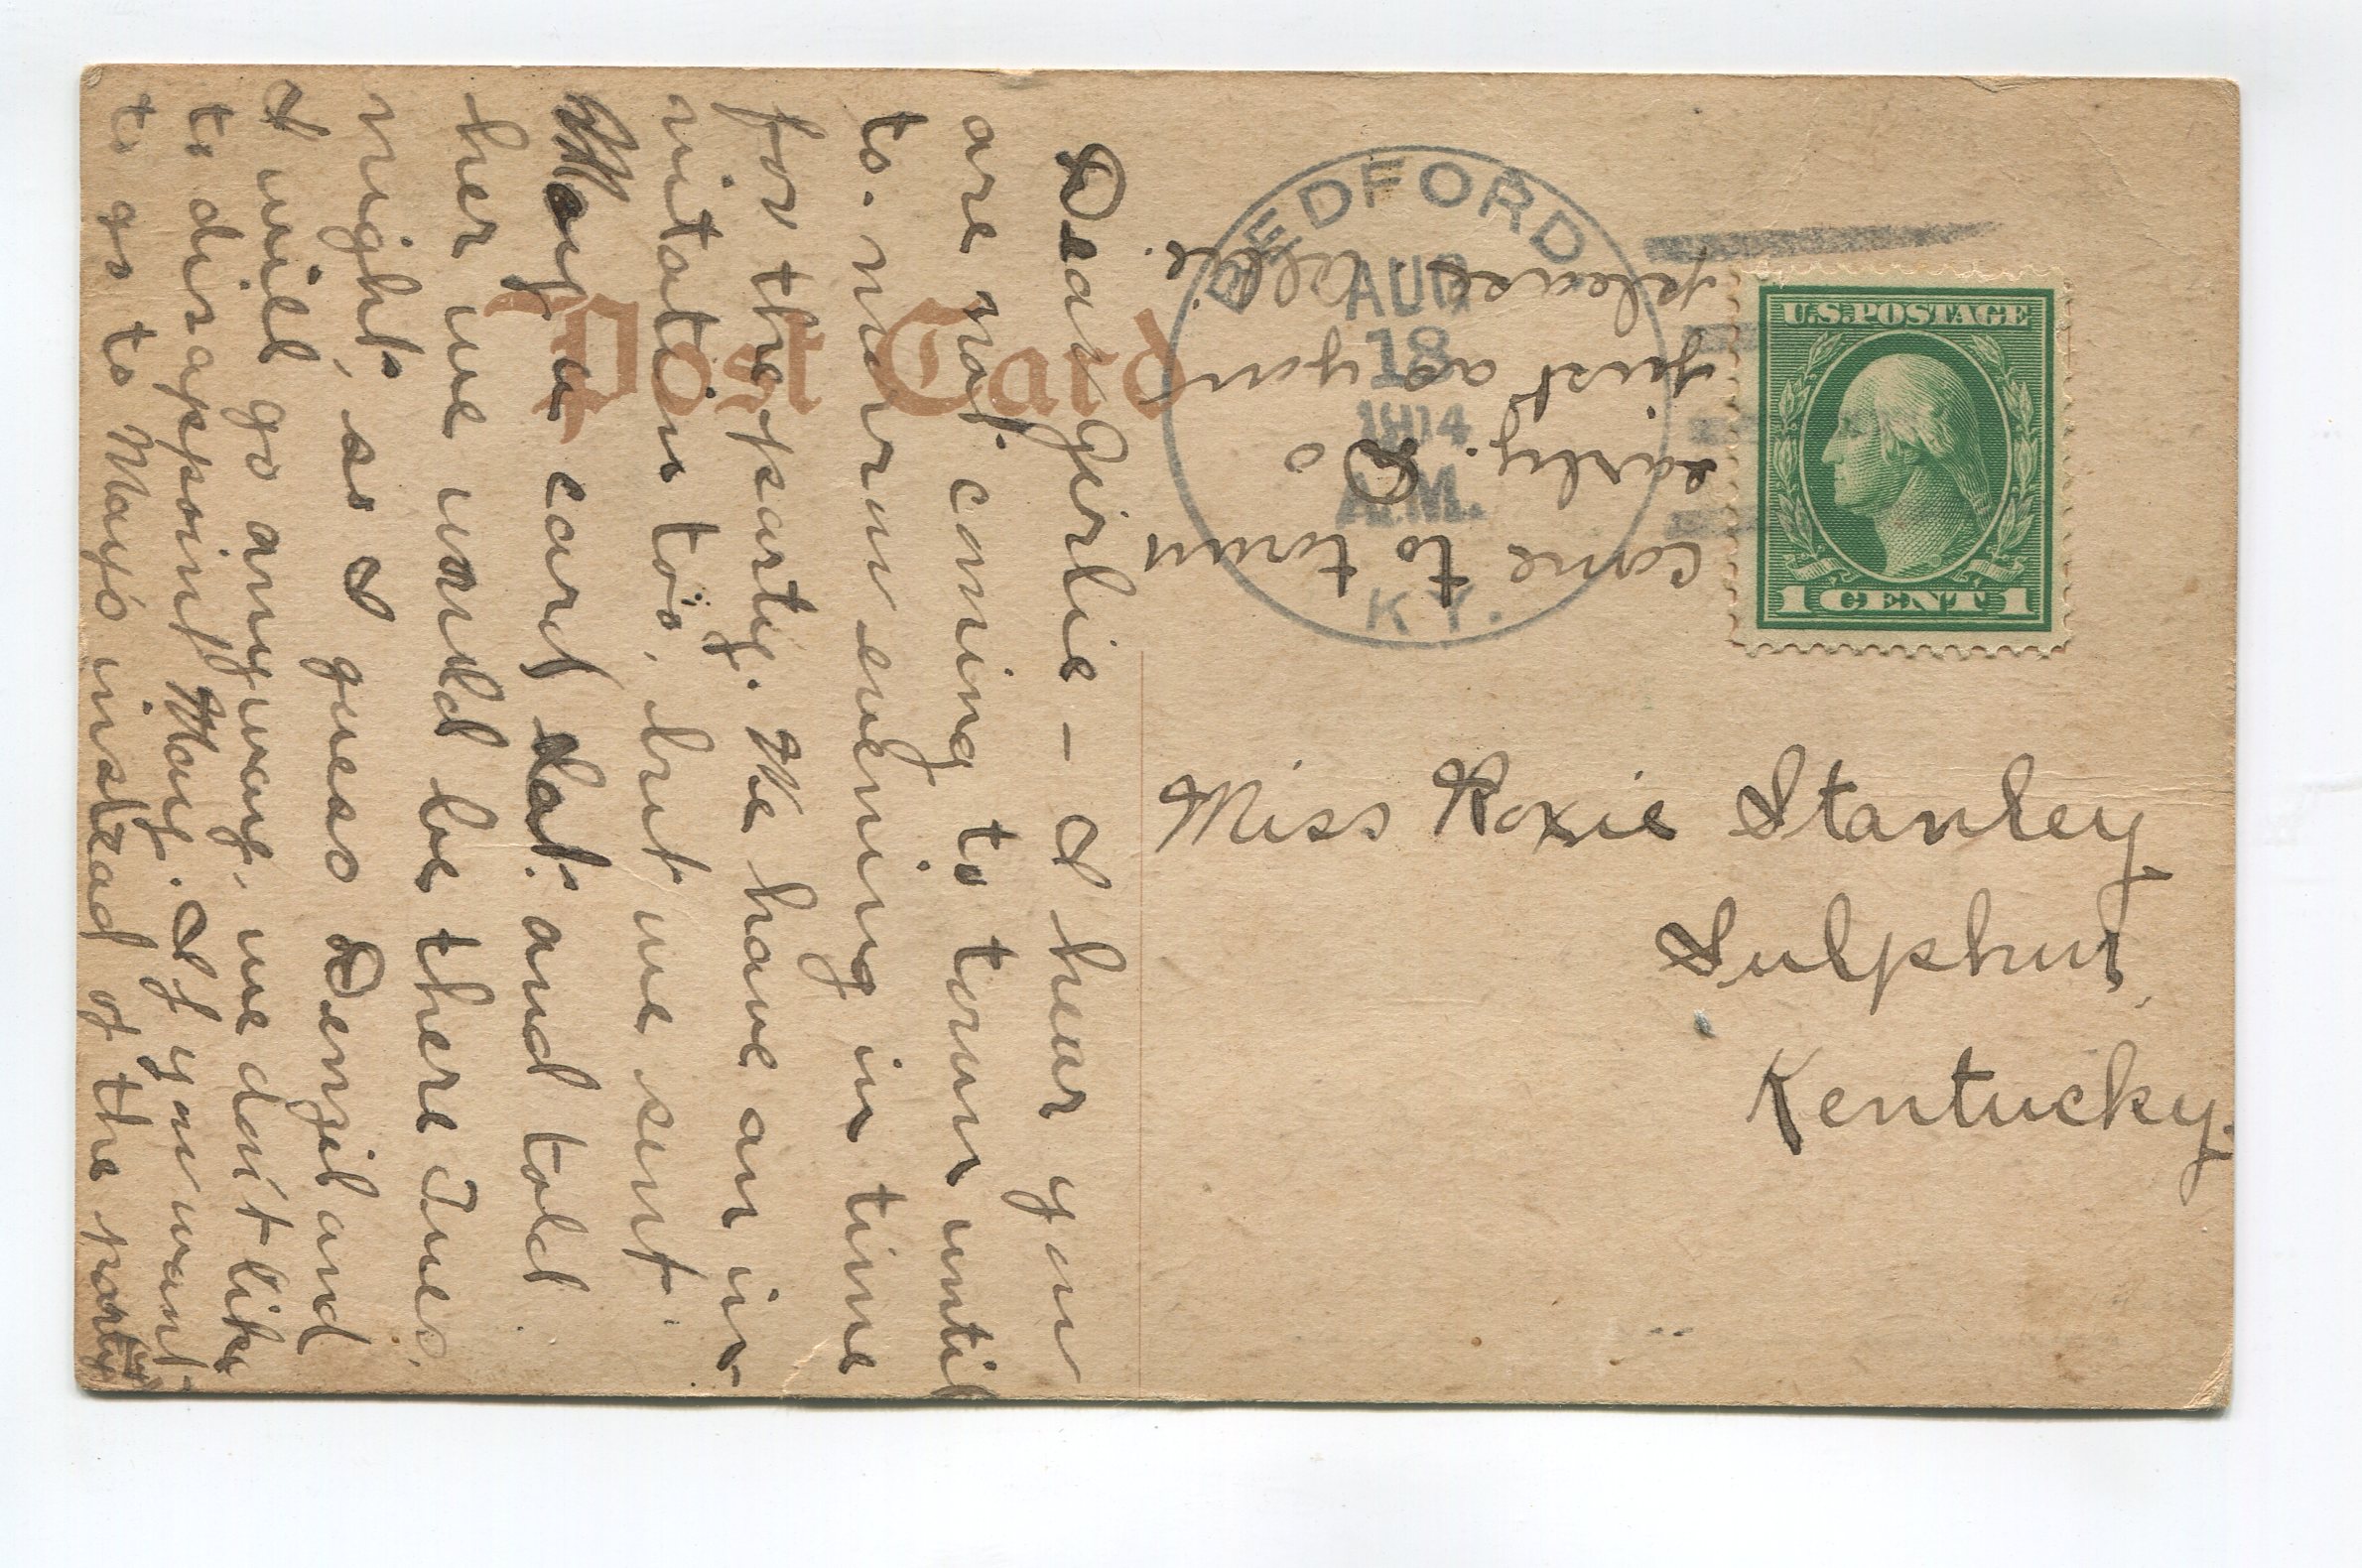 Post Card
BEDFORD
AUG
18
1914
A.M.
KY.
U.S. POSTAGE
1 CENT 1
Miss Roxie Stanley
Sulphur,
Kentucky.
Dear Girlie - I hear you
are not coming to town until
to-morrow evening in time
for the party. We have an in-
vitation too, but we sent
May a card Sat. and told
her we would be there Tues.
night, so I guess Denzil and
I will go anyway, we don't like
to disappoint May. If you want
to go to May's instead of the party
come to town
early. Do
just as you
please